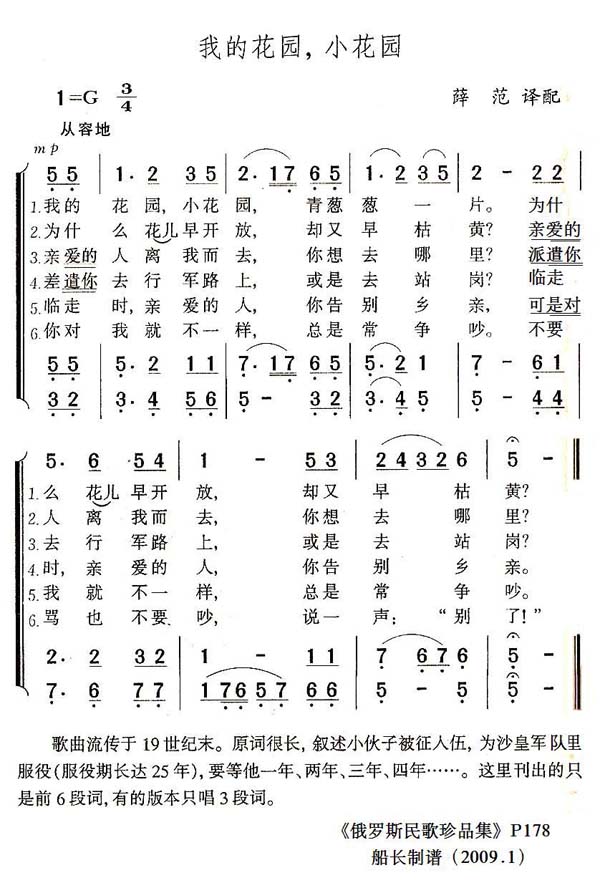 我的花园，小花园
1=G 3/4
薛 范 译配
从容地
mp
5 5 1. 2 3 5 2. 1 7 6 5 1. 2 3 5 2 - 2 2
1.我的 花园，小花园， 青葱葱 一 片。为什
2.为什 么 花儿早开放， 却又 早 枯 黄？亲爱的
3.亲爱的 人 离 我而去， 你想 去 哪 里？派遣你
4.差遣你 去 行 军路 上， 或是 去 站 岗？临走
5.临走 时，亲 爱的 人， 你告 别 乡 亲，可是对
6.你对 我 就 不一 样， 总是 常 争 吵。不要
5 5 5. 2 1 1 7. 1 7 6 5 5. 2 1 7 - 6 1
3 2 3. 4 3 2 5 - 3 2 3. 4 5 5 - 4 4
5. 6 5 4 1 - 5 3 2 4 3 2 6 5 -
1.么 花儿 早开 放， 却又 早 枯 黄？
2.人 离 我而 去， 你想 去 哪 里？
3.去 行 军路 上， 或是 去 站 岗？
4.时，亲 爱的 人， 你告 别 乡 亲。
5.我 就 不一 样， 总是 常 争 吵。
6.骂 也 不要 吵， 说一 声：“别 了！”
2. 3 2 2 1 - 1 1 7 6 7 6 5 -
7. 6 7 7 1 7 6 5 7 6 5 4 3 2 5 -
歌曲流传于19世纪末。原词很长，叙述小伙子被征入伍，为沙皇军队里
服役(服役期长达25年)，要等他一年、两年、三年、四年……。这里刊出的只
是前6段词，有的版本只唱3段词。
《俄罗斯民歌珍品集》P178
船长制谱（2009.1）